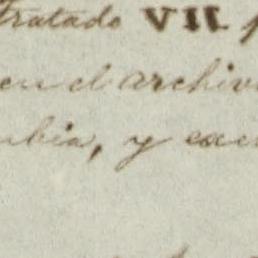 Tratado VII
en el archiv
mbia, y exc